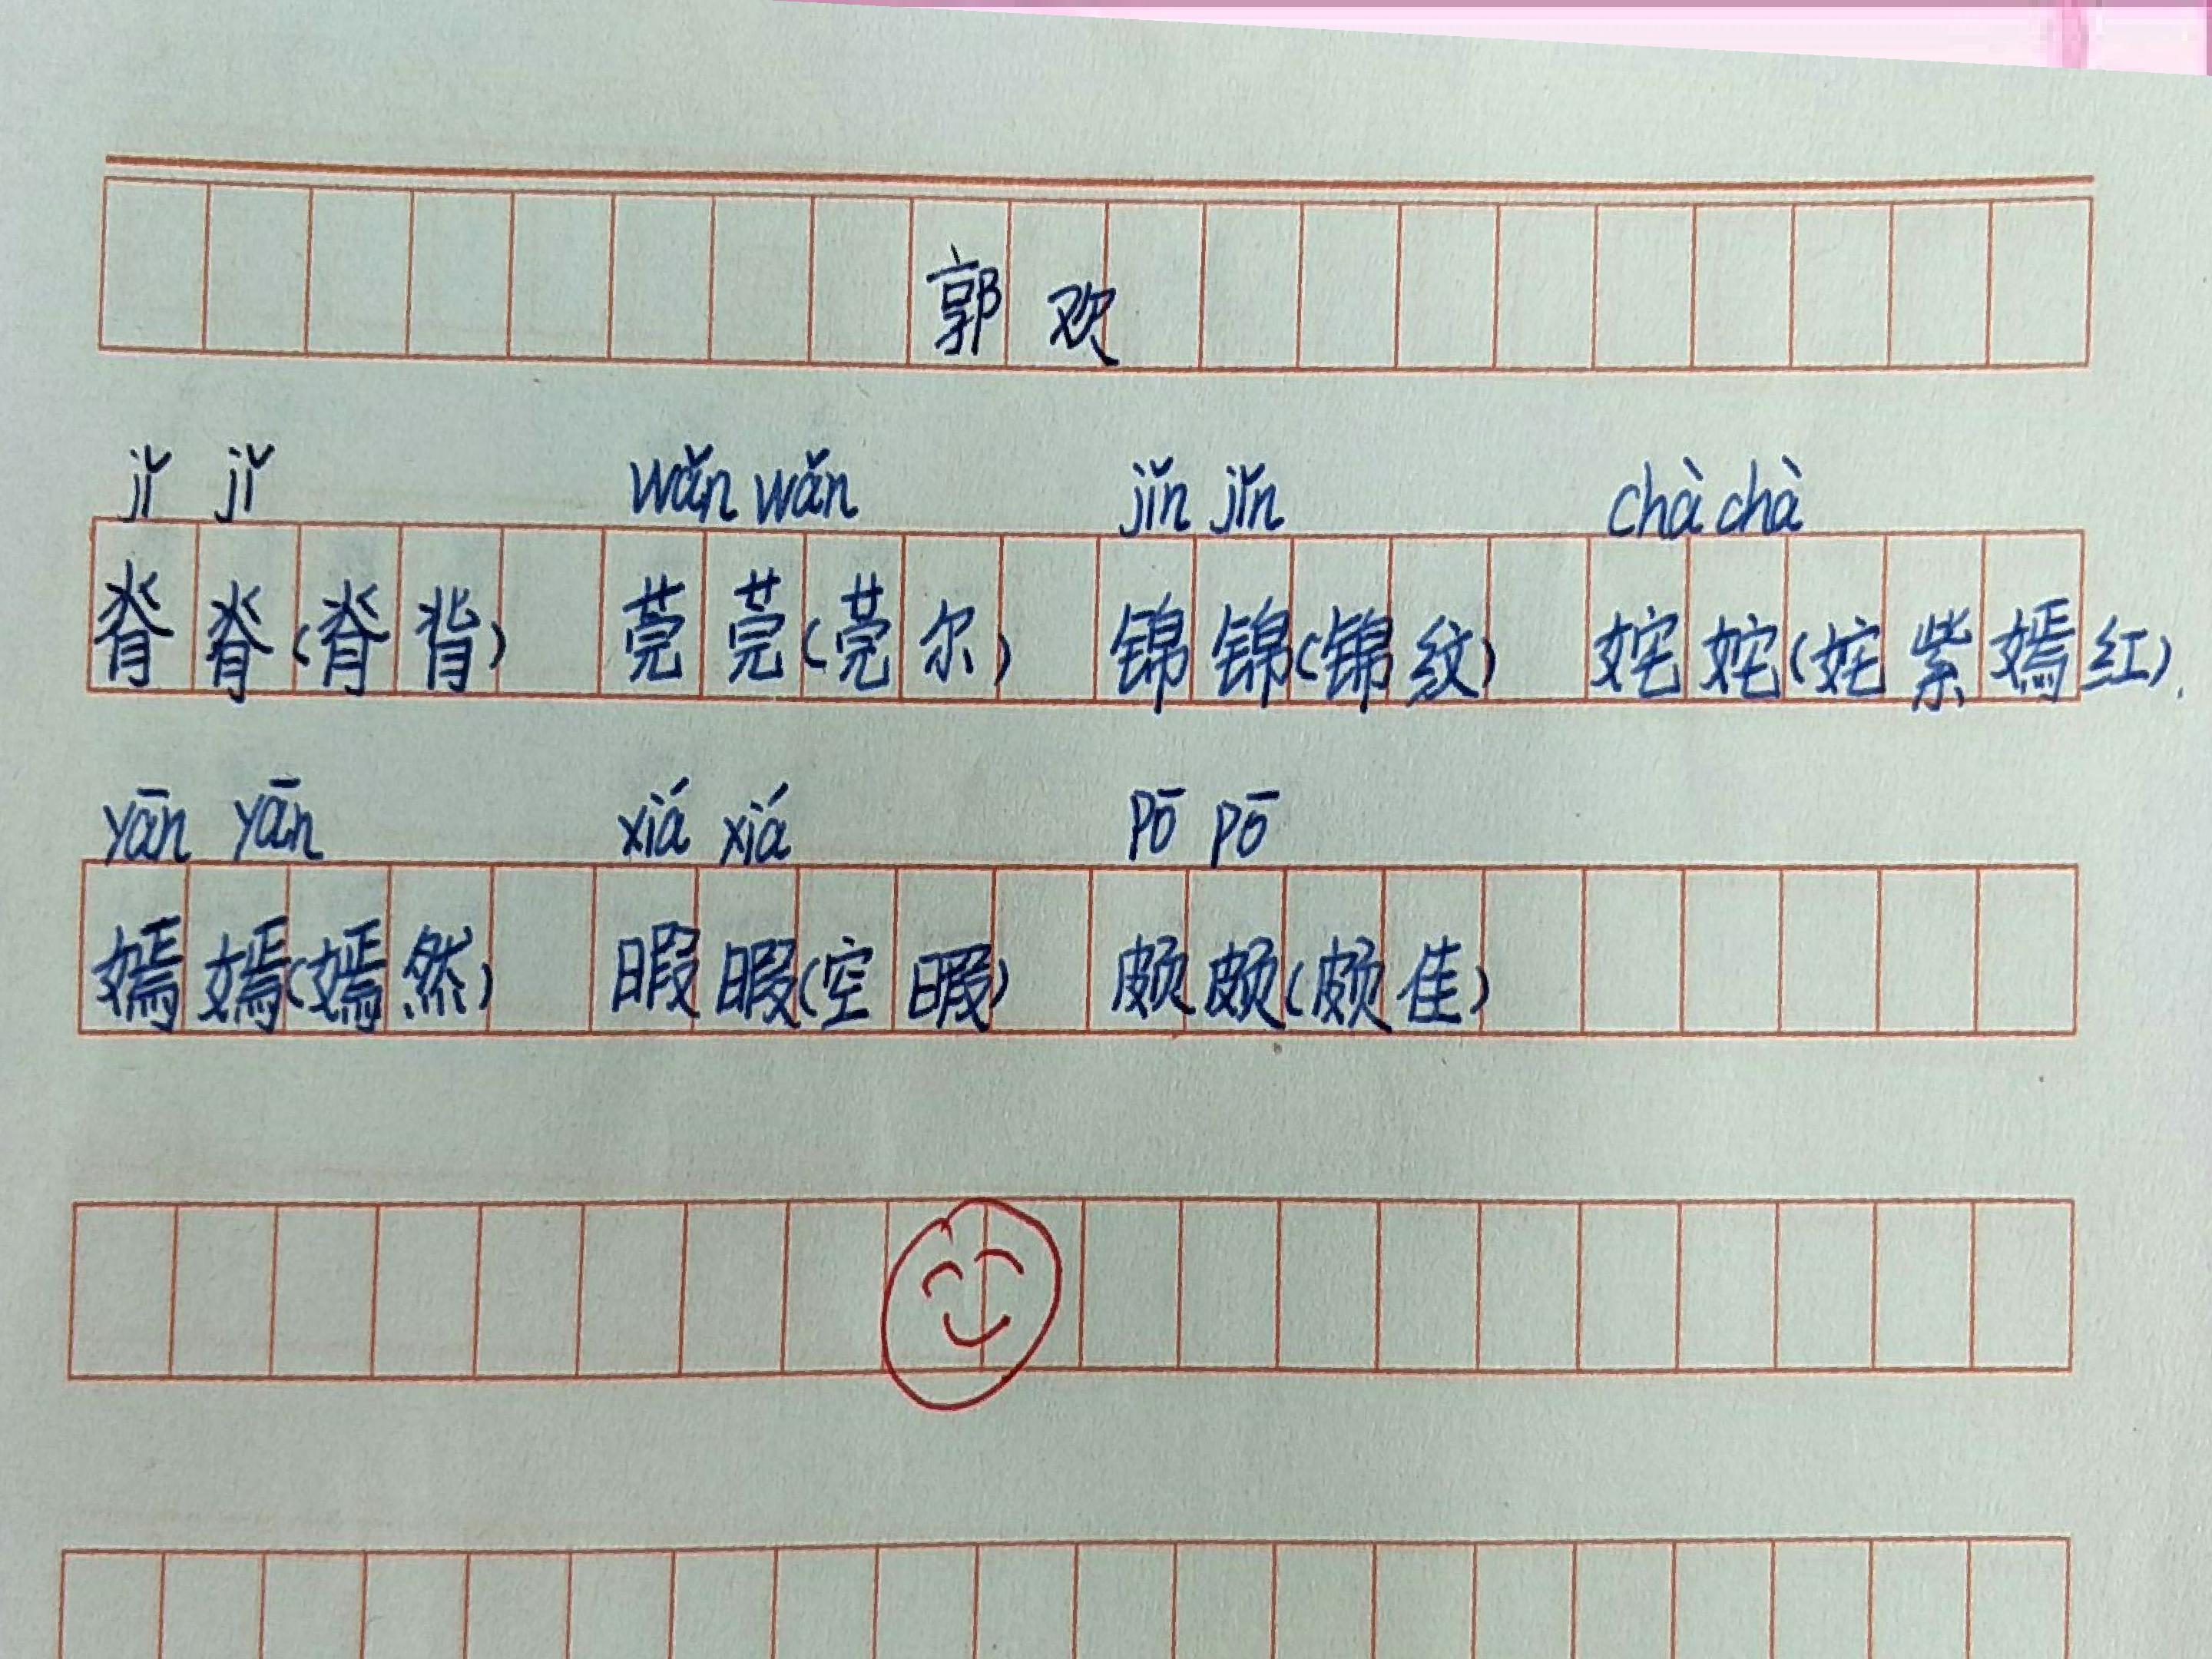 郭欢
jǐ jǐ wǎn wǎn jǐn jǐn chà chà
脊脊(脊背) 莞莞(莞尔) 锦锦(锦纹) 姹姹(姹紫嫣红).
yān yān xiá xiá pō pō
嫣嫣(嫣然) 暇暇(空暇) 颇颇(颇佳)